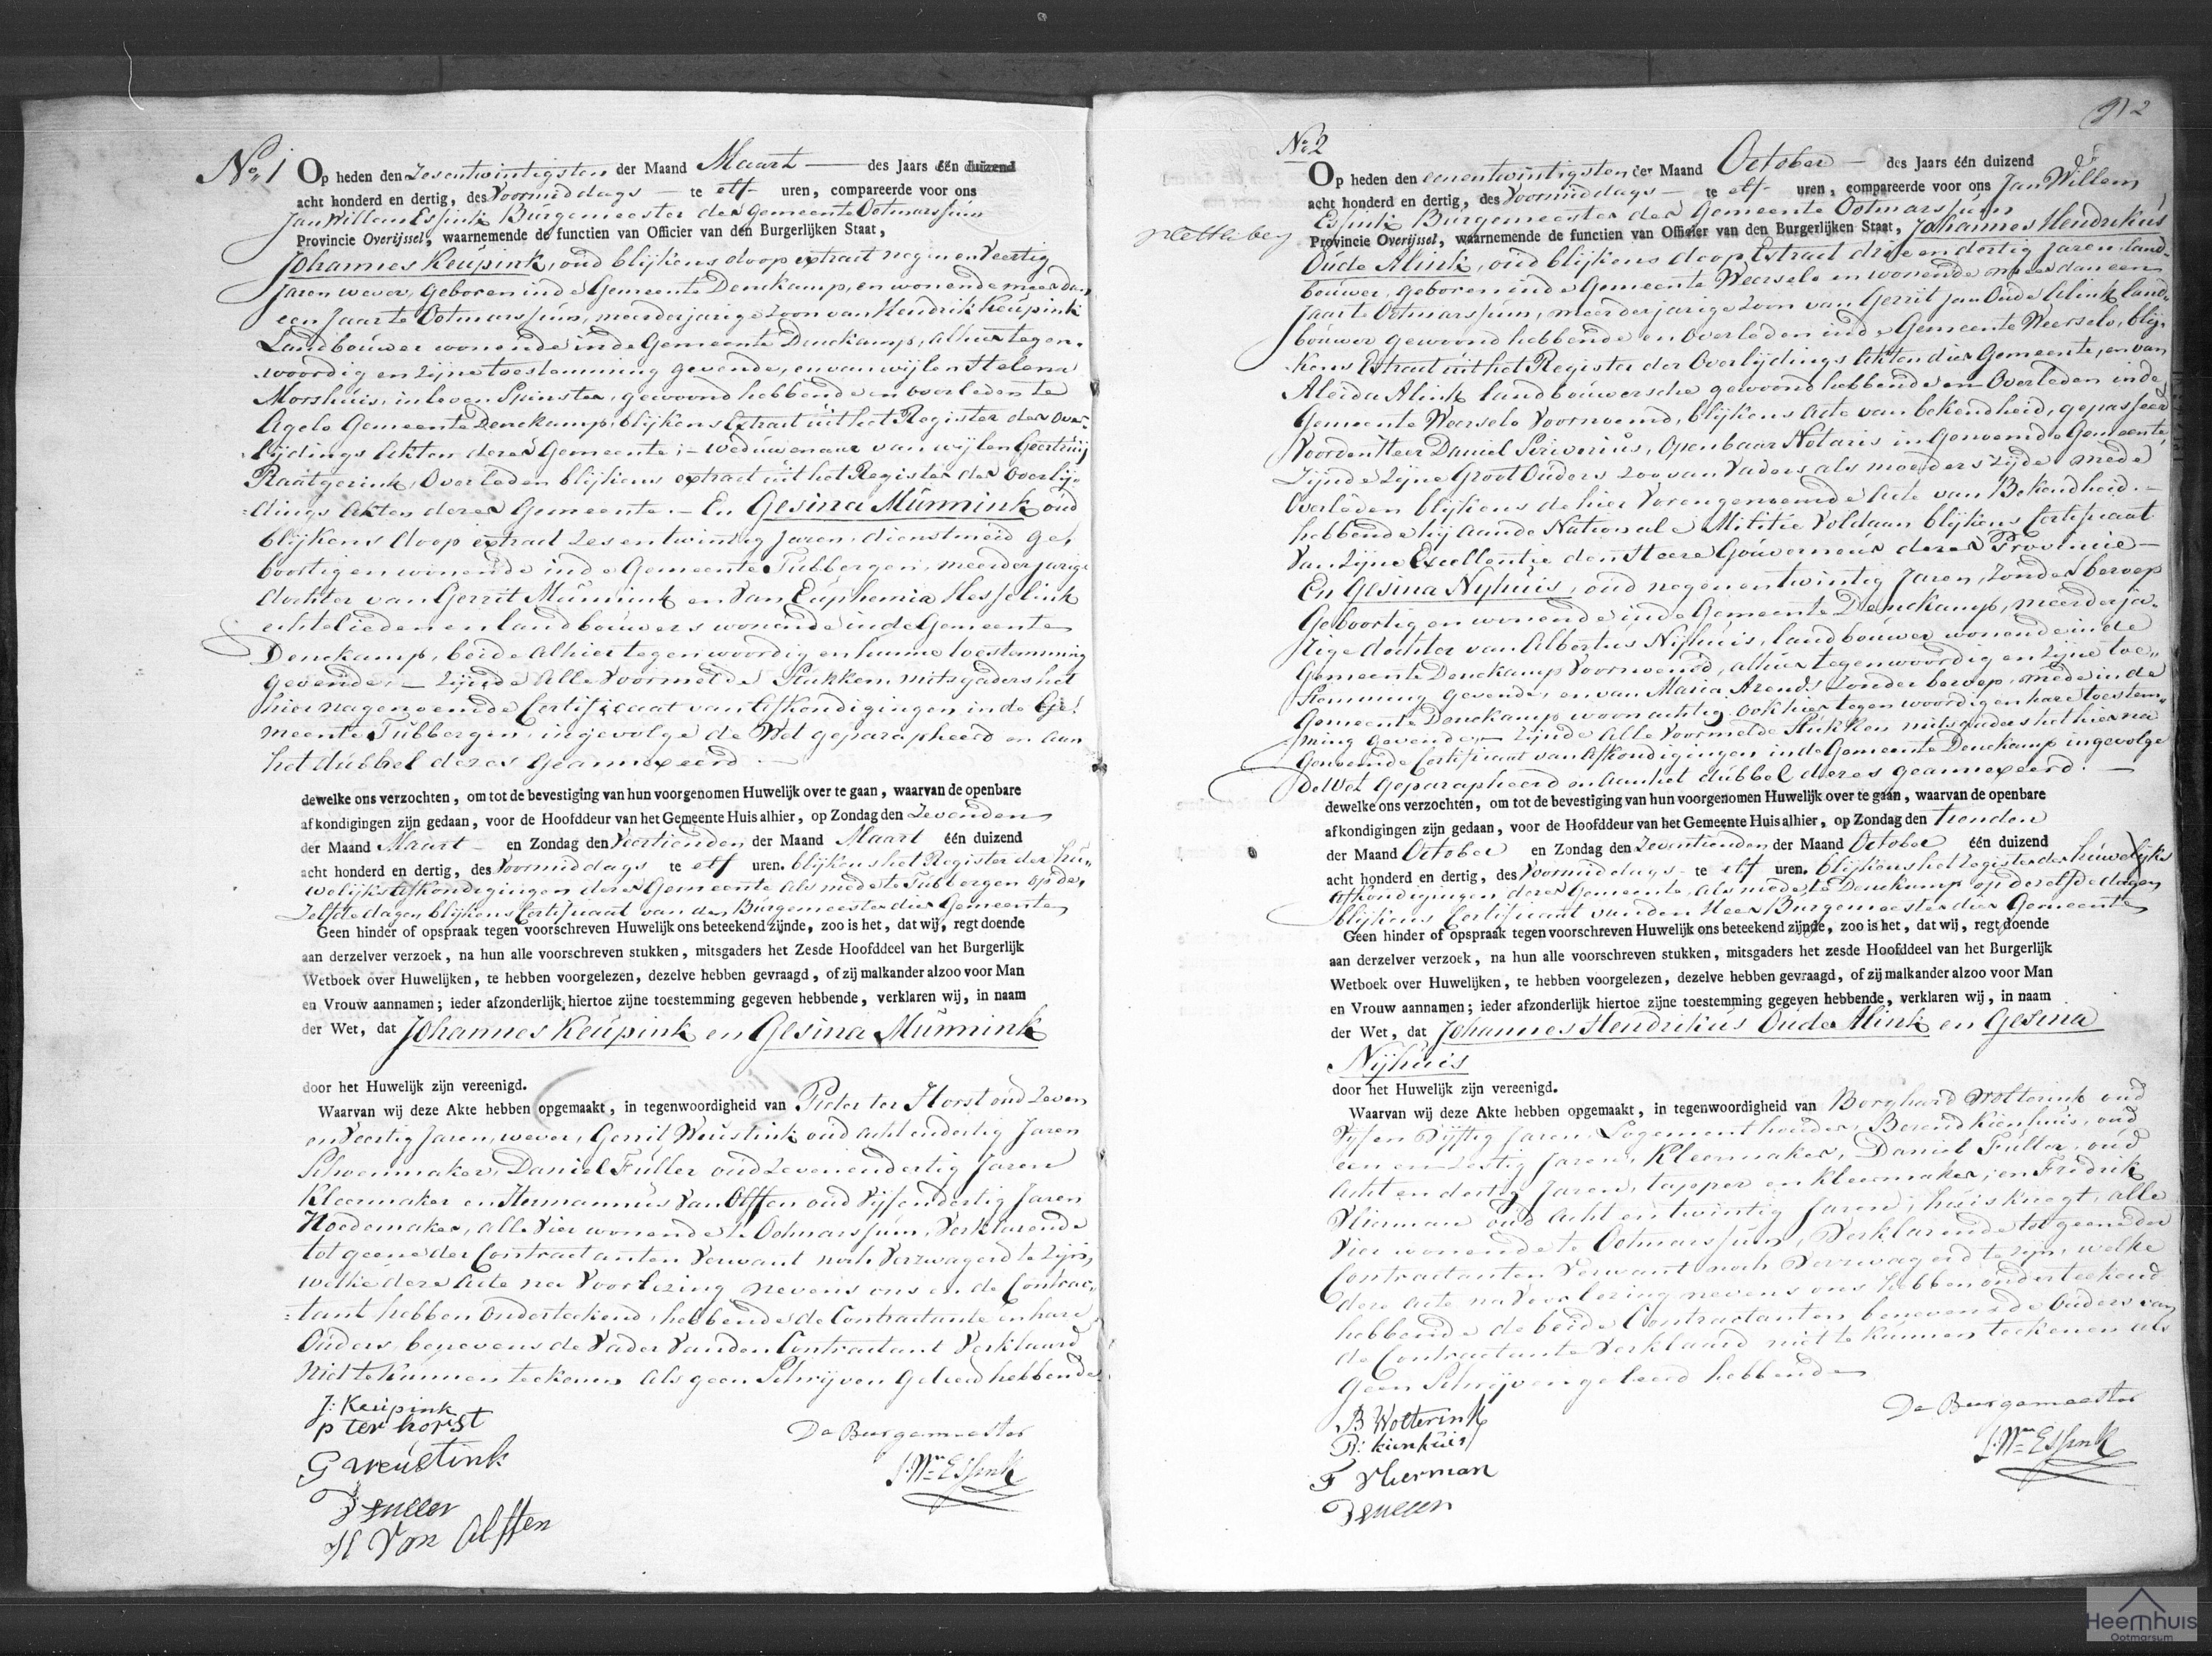 No. 1
Op heden den Zesentwintigsten der Maand Maart des Jaars één duizend
acht honderd en dertig, des Voormiddags te elf uren, compareerde voor ons
Jan Willem Essink Burgemeester der Gemeente Ootmarssum
Provincie Overijssel, waarnemende de functien van Officier van den Burgerlijken Staat,
Johannes Keupink, oud blijkens doop extract negen en Veertig
Jaren wever, Geboren in de Gemeente Denekamp, en wonende meer dan
een Jaar te Ootmarssum, meerderjarige Zoon van Hendrik Keupink
Landbouwer wonende in de Gemeente Denekamp, alhier tegen-
woordig en zijne toestemming gevende, en van wijlen Helena
Morshuis, in leven Spinster, gewoond hebbende en overleden te
Agelo Gemeente Denekamp, blijkens Extract uit het Register der Over-
lijdings Akten dezer Gemeente; – weduwenaar van wijlen Geertruij
Raatgerink, Overleden blijkens extract uit het Register der Overlij-
dings Akten dezer Gemeente. – En Gesina Munnink oud
blijkens doop extract zes en twintig Jaren, dienstmeid ge-
boortig en wonende in de Gemeente Tubbergen, meerderjarige
dochter van Gerrit Munnink en Van Euphemia Hesselink
echtelieden en landbouwers wonende in de Gemeente
Denekamp, beide alhier tegenwoordig en hunne toestemming
gevende; – Zijnde Alle Voormelde Stukken mitsgaders het
hier nagenoemde Certificaat van Afkondigingen in de Ge-
meente Tubbergen, ingevolge de Wet geparapheerd en aan
het dubbel dezes Geannexeerd. –
dewelke ons verzochten, om tot de bevestiging van hun voorgenomen Huwelijk over te gaan, waarvan de openbare
afkondigingen zijn gedaan, voor de Hoofddeur van het Gemeente Huis alhier, op Zondag den Zevenden
der Maand Maart en Zondag den Veertienden der Maand Maart één duizend
acht honderd en dertig, des Voormiddags te elf uren. blijkens het Register der Hu-
welijks Afkondigingen dezer Gemeente als mede te Tubbergen op de-
Zelfde dagen blijkens Certificaat van den Burgemeester dier Gemeente
Geen hinder of opspraak tegen voorschreven Huwelijk ons beteekend zijnde, zoo is het, dat wij, regt doende
aan derzelver verzoek, na hun alle voorschreven stukken, mitsgaders het Zesde Hoofddeel van het Burgerlijk
Wetboek over Huwelijken, te hebben voorgelezen, dezelve hebben gevraagd, of zij malkander alzoo voor Man
en Vrouw aannamen; ieder afzonderlijk hiertoe zijne toestemming gegeven hebbende, verklaren wij, in naam
der Wet, dat Johannes Keupink en Gesina Munnink
door het Huwelijk zijn vereenigd.
Waarvan wij deze Akte hebben opgemaakt, in tegenwoordigheid van Pieter ter Horst oud Zeven
en Veertig Jaren, wever, Gerrit Weustink oud acht en dertig Jaren
Schoenmaker, Daniel Fuller oud Zeven en dertig Jaren
Kleermaker en Hermannus Van Olffen oud Vijf en dertig Jaren
Hoedemaker, alle Vier wonende te Ootmarssum, Verklarende
tot geene der Contractanten Verwant noch Verzwagerd te Zijn,
welke deze Acte na Voorlezing nevens ons en de Contrac-
tant hebben Onderteekend, hebbende de Contractante en hare
Ouders benevens de Vader Van den Contractant Verklaard
Niet te kunnen teekenen als geen Schrijven Geleerd hebbende
J: Keupink
P ter horst
G weustink
D Fuller
H Van Olffen
De Burgemeester
J. Wm. Essink
2
No. 2
Op heden den eenentwintigsten der Maand October des Jaars één duizend
acht honderd en dertig, des Voormiddags te elf uren, compareerde voor ons Jan Willem
Essink Burgemeester der Gemeente Ootmarssum
Provincie Overijssel, waarnemende de functien van Officier van den Burgerlijken Staat, Johannes Hendrikus
Oude Alink, oud blijkens doop Extract drie en dertig Jaren, land-
bouwer, geboren in de Gemeente Weerselo en wonende meer dan een
Jaar te Ootmarssum, meerderjarige Zoon van Gerrit Jan Oude Alink land-
bouwer gewoond hebbende en Overleden in de Gemeente Weerselo, blij-
kens Extract uit het Register der Overlijdings Akten dier Gemeente, en van
Aleida Alink landbouwersche gewoond hebbende en Overleden in de
Gemeente Weerselo Voornoemd, blijkens Acte van bekendheid, gepasseerd
Voor den Heer Daniel Scriverius, Openbaar Notaris in Genoemde Gemeente,
Zijnde Zijne Groot Ouders zoo van Vaders als moeders zijde mede
Overleden blijkens de hier Voren genoemde Acte van Bekendheid. –
hebbende hij aan de Nationale Militie Voldaan blijkens Certificaat
Van Zijne Excellentie den Heere Gouverneur dezer Provincie –
En Gesina Nyhuis, oud negen en twintig Jaren, zonder beroep
Geboortig en wonende in de Gemeente Denekamp, meerderja-
rige dochter van Albertus Nijhuis, landbouwer wonende in de
Gemeente Denekamp Voornoemd, alhier tegenwoordig en zijne toe-
stemming gevende, en van Maria Arends zonder beroep, mede in de
Gemeente Denekamp woonachtig, ook hier tegenwoordig en hare toestem-
ming gevende; – Zijnde Alle Voormelde Stukken mitsgaders het hier na
Genoemde Certificaat van Afkondigingen in de Gemeente Denekamp ingevolge
De Wet Geparapheerd en aan het dubbel dezes geannexeerd. –
dewelke ons verzochten, om tot de bevestiging van hun voorgenomen Huwelijk over te gaan, waarvan de openbare
afkondigingen zijn gedaan, voor de Hoofddeur van het Gemeente Huis alhier, op Zondag den tienden
der Maand October en Zondag den Zeventienden der Maand October één duizend
acht honderd en dertig, des Voormiddags te elf uren. blijkens het Register der Huwelijks
afkondigingen dezer Gemeente, als mede te Denekamp op dezelfde dagen
blijkens Certificaat van den Heer Burgemeester dier Gemeente
Geen hinder of opspraak tegen voorschreven Huwelijk ons beteekend zijnde, zoo is het, dat wij, regt doende
aan derzelver verzoek, na hun alle voorschreven stukken, mitsgaders het zesde Hoofddeel van het Burgerlijk
Wetboek over Huwelijken, te hebben voorgelezen, dezelve hebben gevraagd, of zij malkander alzoo voor Man
en Vrouw aannamen; ieder afzonderlijk hiertoe zijne toestemming gegeven hebbende, verklaren wij, in naam
der Wet, dat Johannes Hendrikus Oude Alink en Gesina
Nijhuis
door het Huwelijk zijn vereenigd.
Waarvan wij deze Akte hebben opgemaakt, in tegenwoordigheid van Borghard Wolterink oud
Vijf en Vijftig Jaren, Logementhouder, Berend Kienhuis, oud
een en Zestig Jaren, Kleermaker, Daniel Fuller, oud
acht en dertig Jaren, tapper en kleermaker, en Fredrik
Vlierman oud acht en twintig Jaren, huisknegt, alle
Vier wonende te Ootmarssum, Verklarende tot geene der
Contractanten Verwant noch Verzwagerd te zijn, welke
deze Acte na Voorlezing nevens ons hebben onderteekend
hebbende de beide Contractanten benevens de Ouders van
de Contractante Verklaard niet te kunnen teekenen als
Geen Schrijven geleerd hebbende
B Wolterink
B: kienhuis
F Vlierman
D Fuller
De Burgemeester
J. Wm. Essink
Heemhuis
Ootmarsum